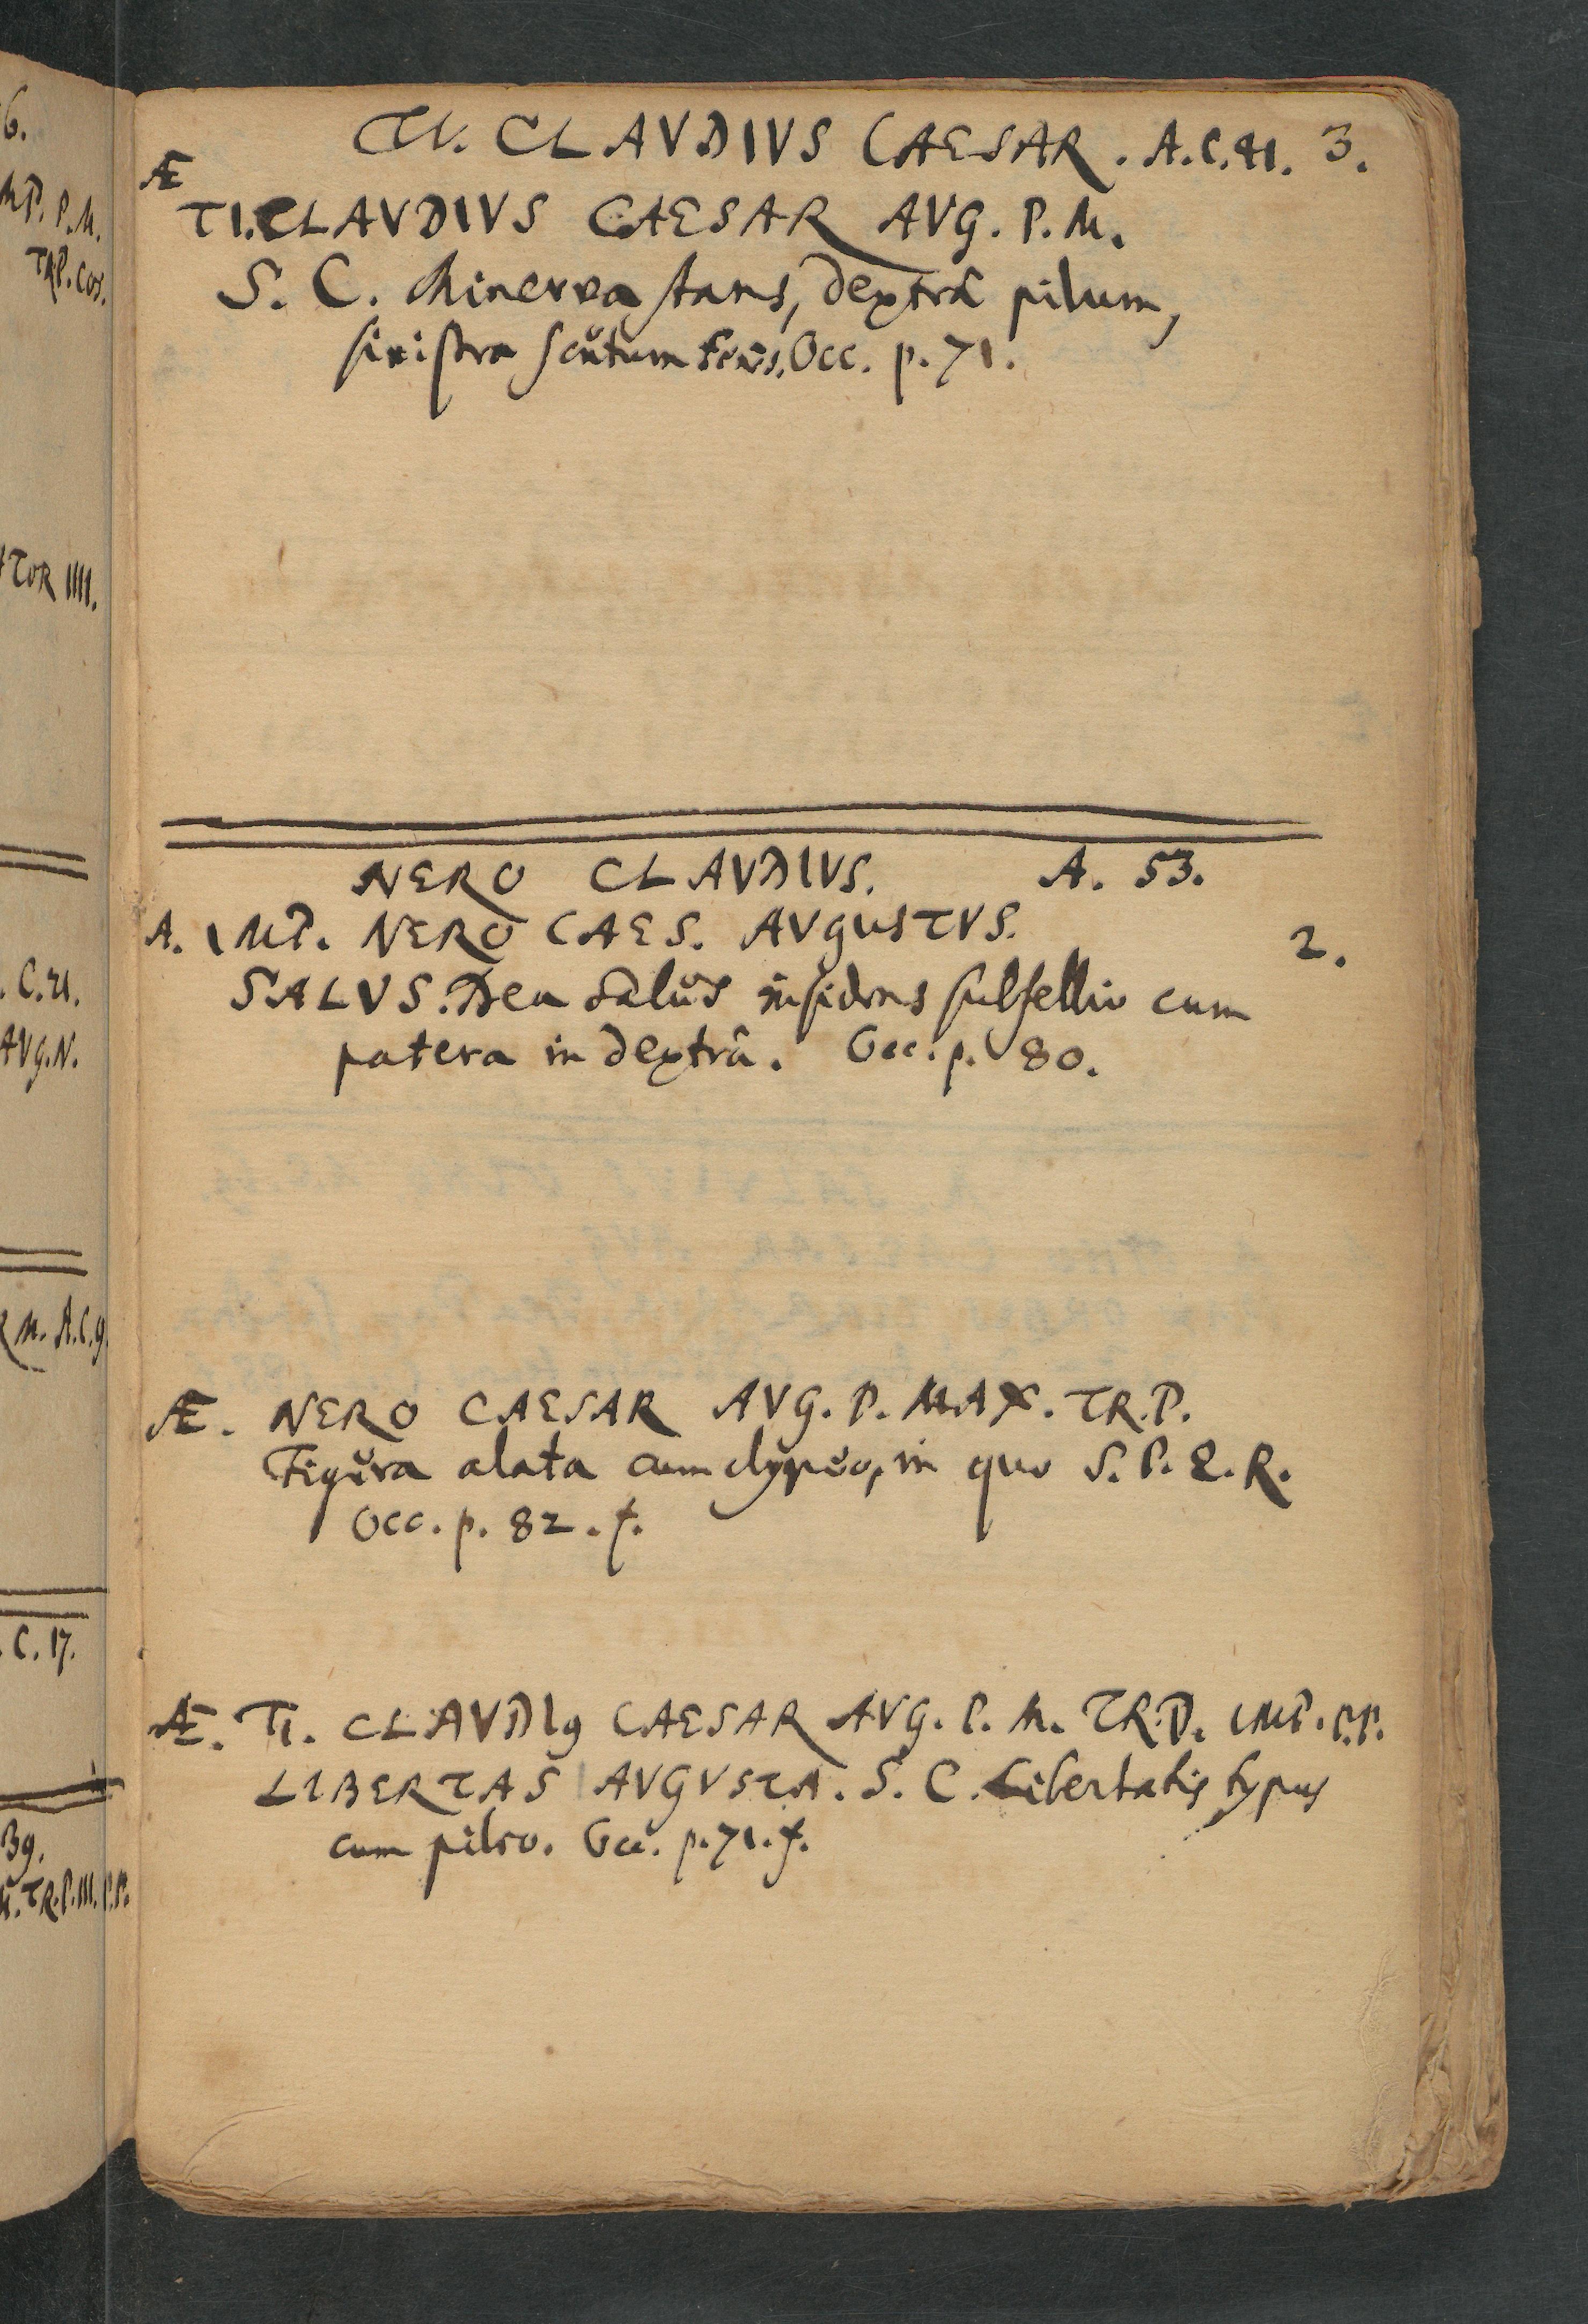 6.
MP. P. M.
TR.P. COS.
TOR IIII.
. C. 21.
AVG. N.
R M. A.C. 9
. C. 17.
39.
TR.P. III. P.P.
TI. CLAVDIVS CAESAR. A.C. 41. 3.
Æ
TI. CLAVDIVS CAESAR AVG. P. M.
S. C. Minerva stans, dextrâ pilum,
sinistra scutum tenens. Occ. p. 71.
NERO CLAVDIVS. A. 53.
A. IMP. NERO CAES. AVGUSTVS. 2.
SALVS. Dea Salus insidens subsellio cum
patera in dextrâ. Occ. p. 80.
Æ. NERO CAESAR AVG. P. MAX. TR. P.
Figura alata cum clypeo, in quo S. P. Q. R.
Occ. p. 82. f.
Æ. TI. CLAVDI9 CAESAR AVG. P. M. TR. P. IMP. P.P.
LIBERTAS AVGVSTA. S. C. Libertatis typus
cum pileo. Occ. p. 71. f.